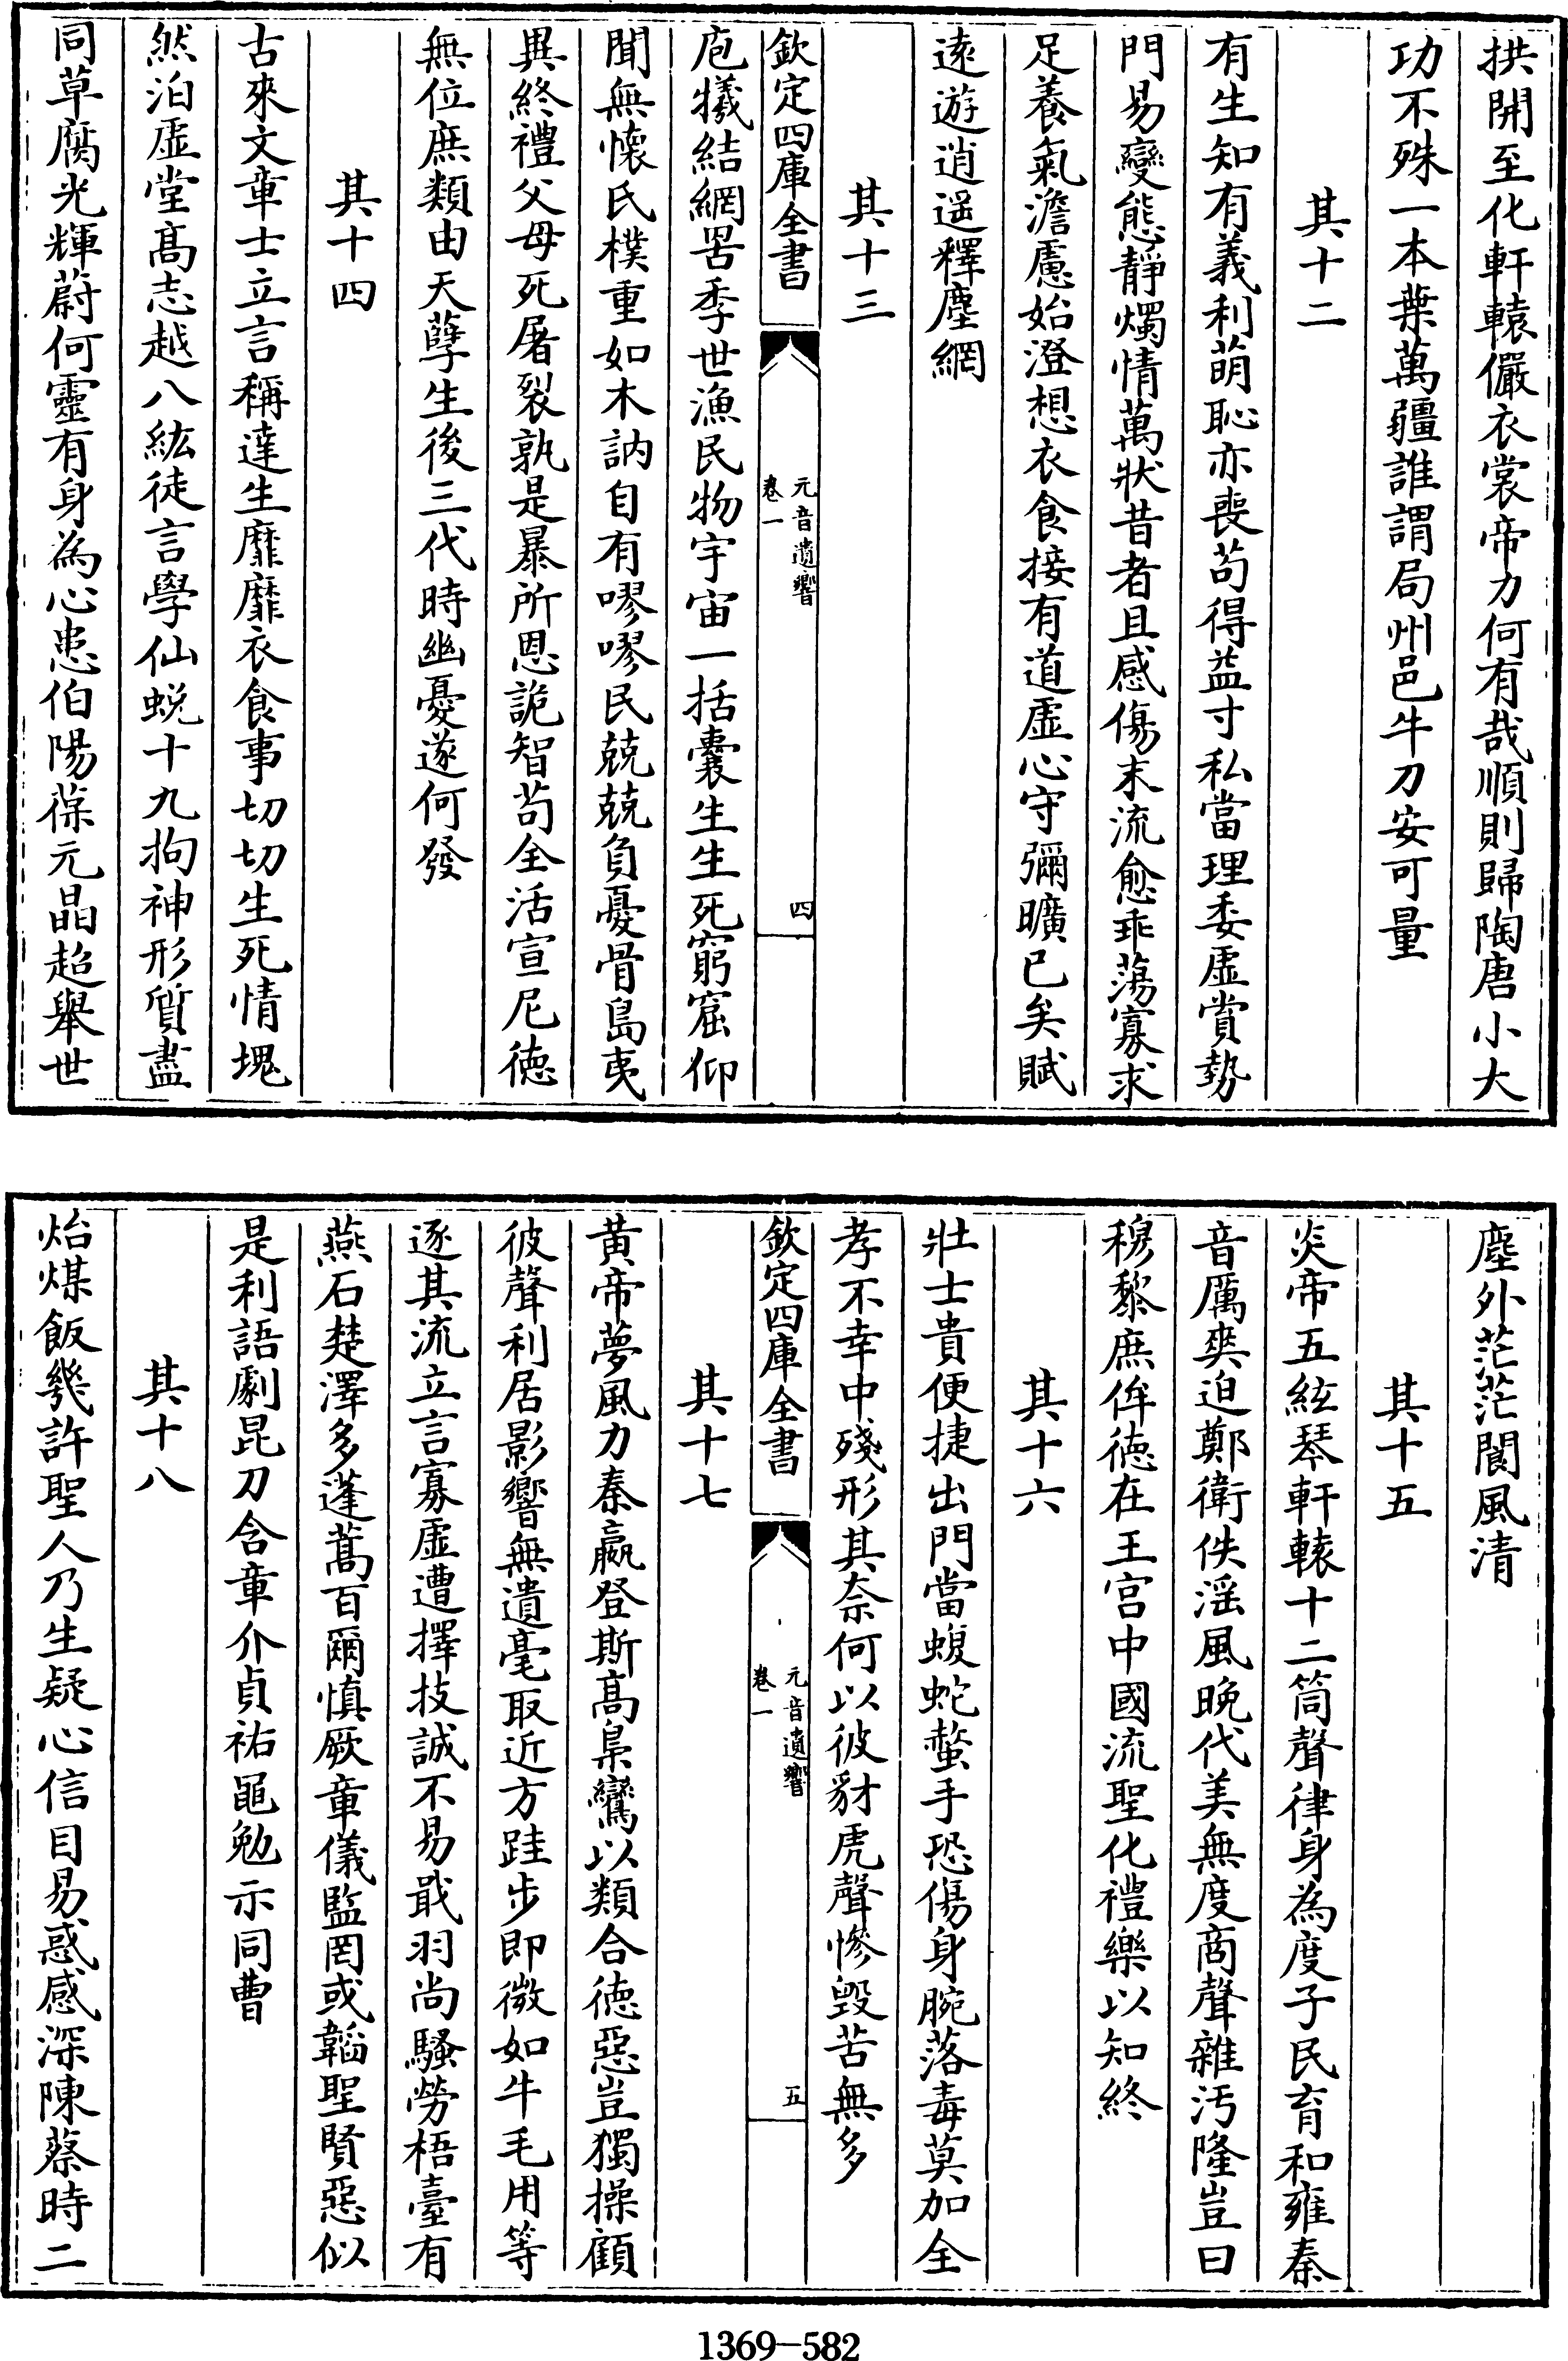 拱開至化軒轅儼衣裳帝力何有哉順則歸陶唐小大
功不殊一本葉萬疆誰謂局州邑牛刀安可量
其十二
有生知有義利萌恥亦喪苟得益寸私當理委虛賞勢
門易變態靜燭情萬狀昔者且感傷末流愈乖蕩寡求
足養氣澹慮始澄想衣食接有道虛心守彌曠已矣賦
遠遊逍遥釋塵網
其十三
欽定四庫全書
元音遺響
卷一
四
庖犧結網罟季世漁民物宇宙一括囊生生死窮窟仰
聞無懷氏樸重如木訥自有嘐嘐民兢兢負憂骨島夷
異終禮父母死屠裂孰是暴所恩詭智苟全活宣尼德
無位庶類由天孽生後三代時幽憂遂何發
其十四
古來文章士立言稱達生靡靡衣食事切切生死情塊
然泊虛堂髙志越八紘徒言學仙蜕十九拘神形質盡
同草腐光輝蔚何靈有身為心患伯陽葆元晶超舉世
塵外茫茫閬風清
其十五
炎帝五絃琴軒轅十二筒聲律身為度子民育和雍秦
音厲奕迫鄭衛佚滛風晚代美無度商聲雜汚隆豈曰
穆黎庶侔德在王宫中國流聖化禮樂以知終
其十六
壯士貴便捷出門當蝮蛇螫手恐傷身腕落毒莫加全
孝不幸中殘形其奈何以彼豺虎聲慘毀苦無多
欽定四庫全書
元音遺響
卷一
五
其十七
黄帝夢風力秦嬴登斯髙梟鸞以類合德惡豈獨操顧
彼聲利居影響無遺毫取近方跬步即微如牛毛用等
逐其流立言寡虛遭擇技誠不易戢羽尚騷勞梧臺有
燕石楚澤多蓬蒿百爾慎厥章儀監罔或韜聖賢惡似
是利語劇昆刀含章介貞祐黽勉示同曹
其十八
炲煤飯幾許聖人乃生疑心信目易惑感深陳蔡時二
1369—582